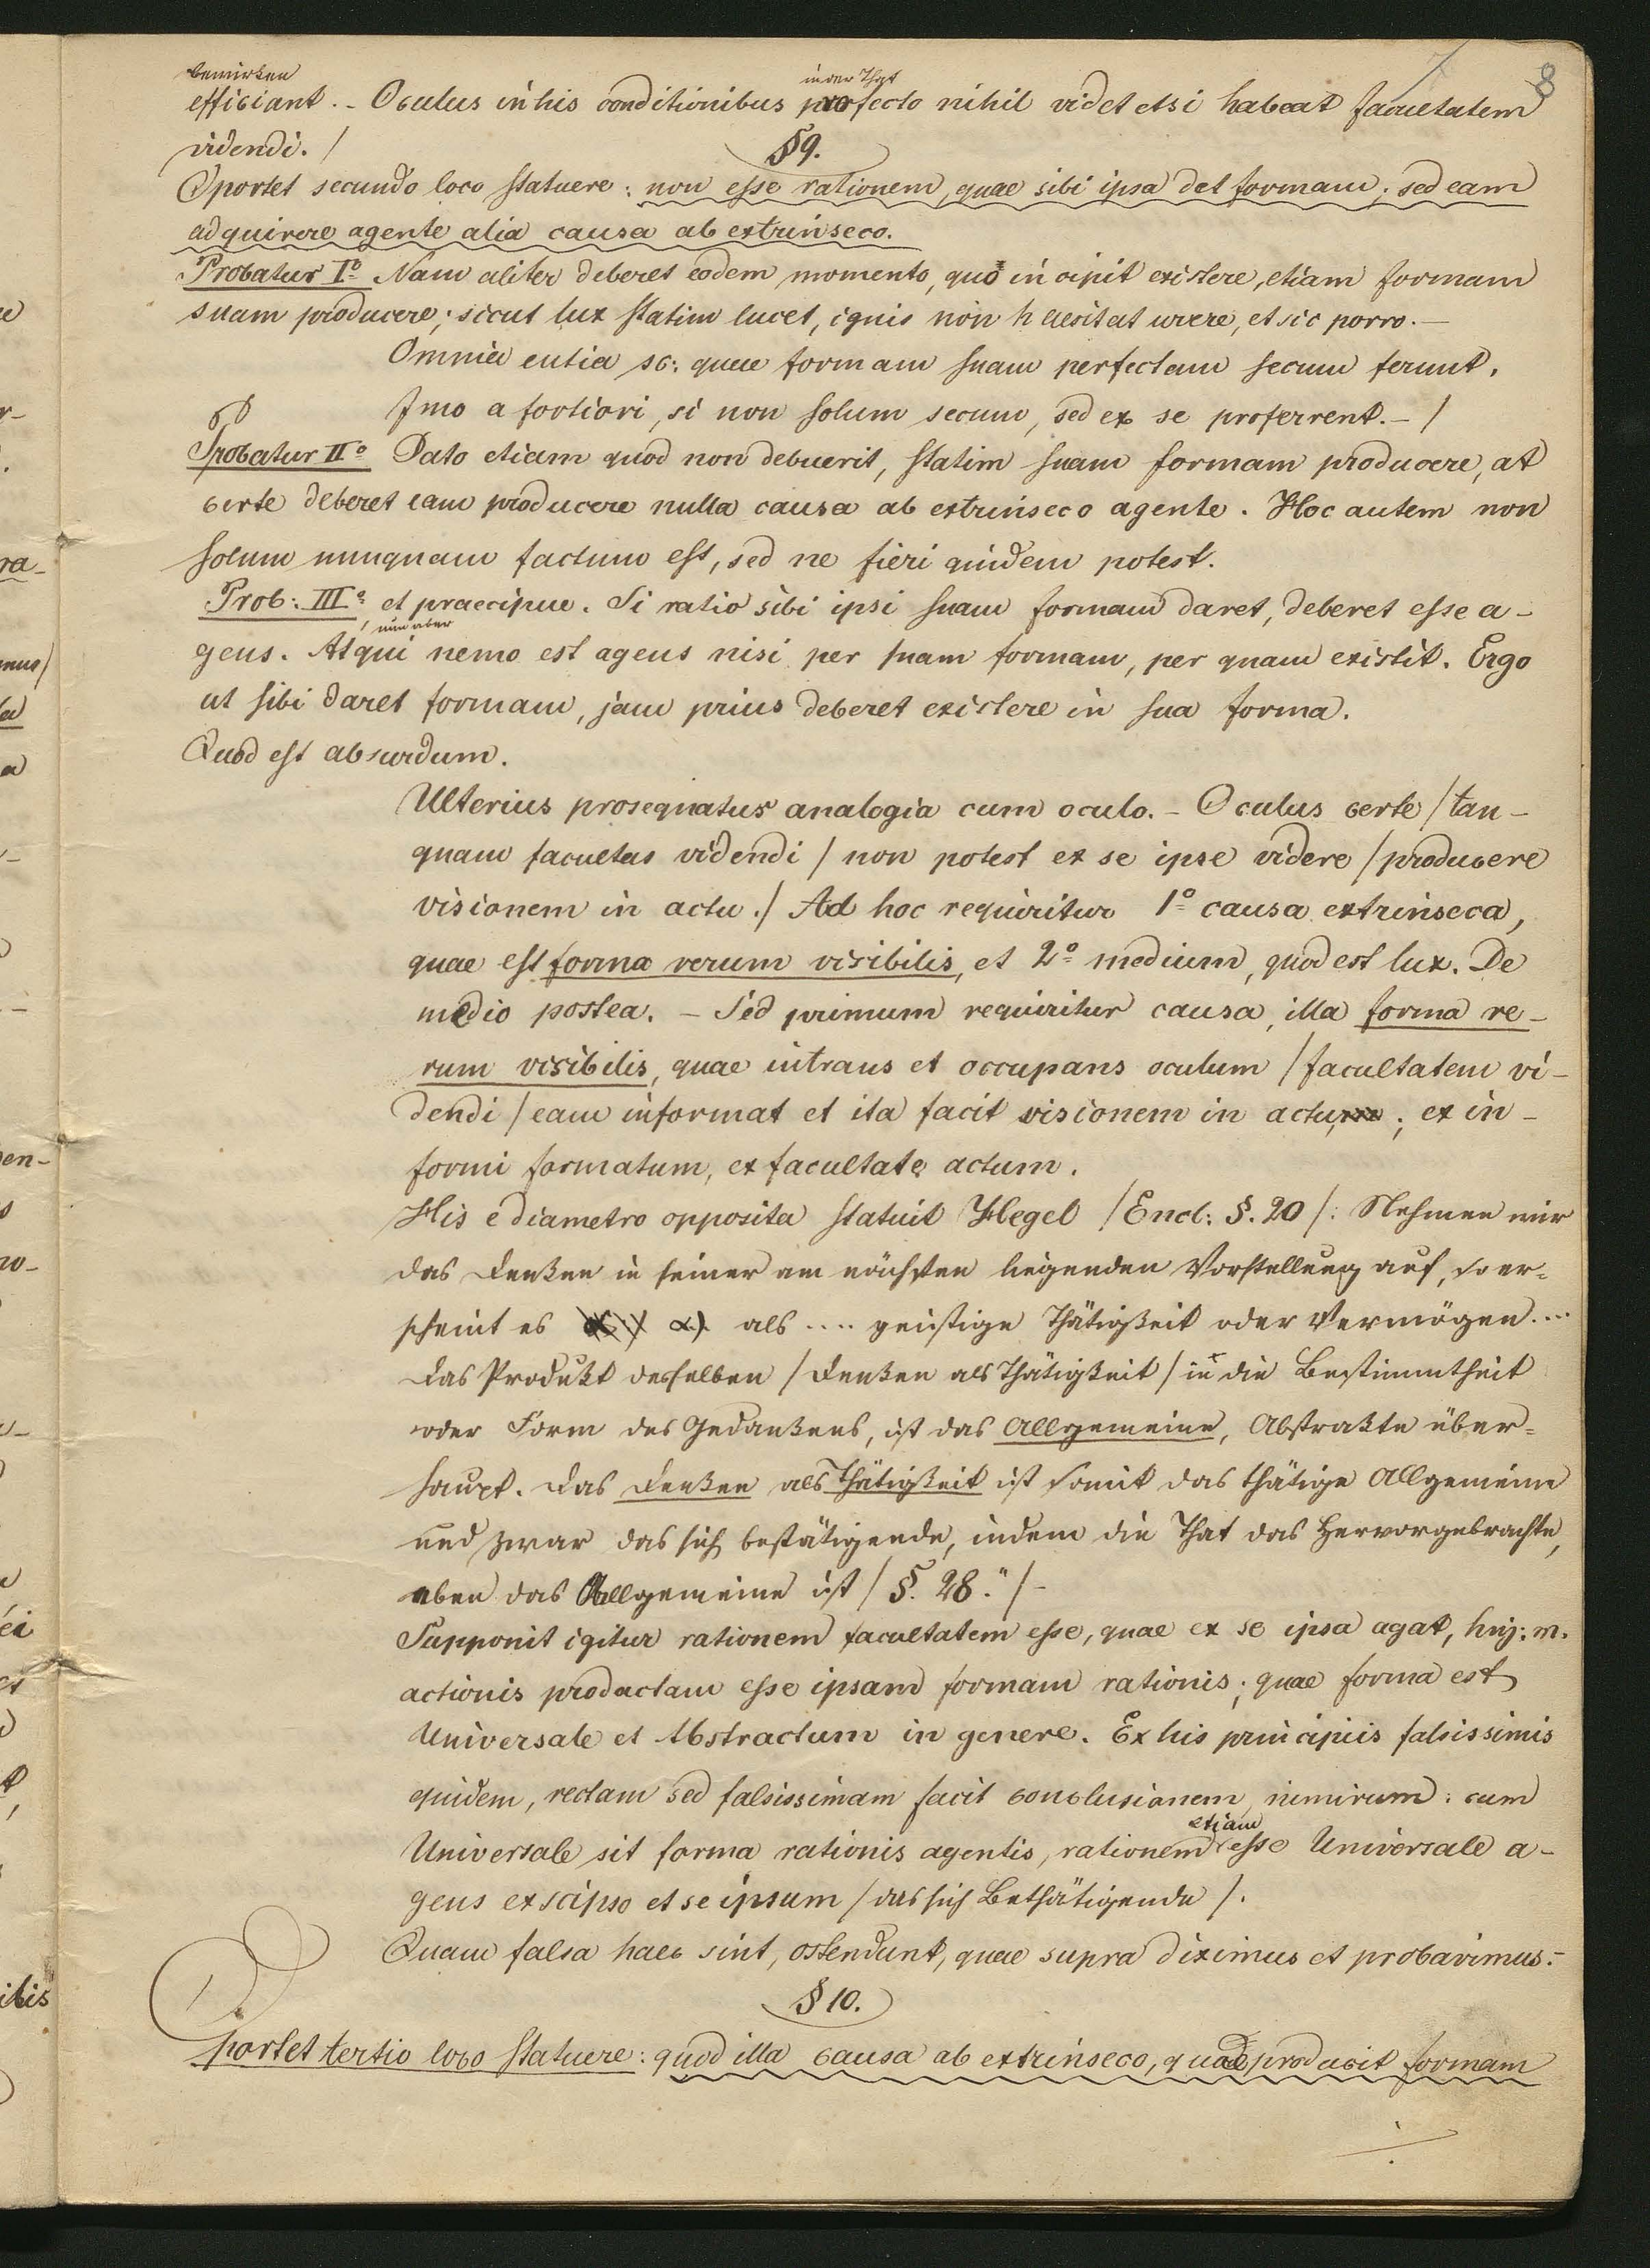 8
bewirken
in der That
efficiant. - Oculus in his conditionibus profecto nihil videt etsi habeat facultatem
videndi. /
§ 9.
Oportet secundo loco statuere: non esse rationem, quae sibi ipsa det formam; sed eam
adquirere agente alia causa ab extrinseco.
Probatur I° Nam aliter deberet eodem momento, quo incipit existere, etiam formam
suam producere; sicut lux statim lucet, ignis non haesitat urere, et sic porro. -
Omnia entia sc: quae formam suam perfectam secum ferunt.
Imo a fortiori, si non solum secum, sed ex se proferrent. - /
Probatur II° Dato etiam quod non debuerit, statim suam formam producere, at
certe deberet eam producere nulla causa ab extrinseco agente. Hoc autem non
solum nunquam factum est, sed ne fieri quidem potest.
Prob: III° et praecipue. Si ratio sibi ipsi suam formam daret, deberet esse a-
nun aber
gens. Atqui nemo est agens nisi per suam formam, per quam existit. Ergo
ut sibi daret formam, jam prius deberet existere in sua forma.
Quod est absurdum.
Ulterius prosequatur analogia cum oculo. - Oculus certe / tan-
quam facultas videndi / non potest ex se ipse videre / producere
visionem in actu. / Ad hoc requiritur 1° causa extrinseca,
quae est forma rerum visibilis, et 2° medium, quod est lux. De
medio postea. - Sed primum requiritur causa, illa forma re-
rum visibilis, quae intrans et occupans oculum / facultatem vi-
dendi / eam informat et ita facit visionem in actu; ex in-
formi formatum, ex facultate actum.
His e diametro opposita statuit Hegel / Encl: §. 20 /: Nehmen wir
das Denken in seiner am nächsten liegenden Vorstellung auf, so er-
scheint es α). als .... geistige Thätigkeit oder Vermögen....
Das Produkt desselben / Denken als Thätigkeit / in die Bestimmtheit
oder Form des Gedankens, ist das Allgemeine, Abstrakte über-
haupt. Das Denken als Thätigkeit ist somit das thätige Allgemeine
und zwar das sich bestätigende, indem die That das Hervorgebrachte,
eben das Allgemeine ist / §. 28." / -
Supponit igitur rationem facultatem esse, quae ex se ipsa agat, huj: m.
actionis productam esse ipsam formam rationis; quae forma est
Universale et Abstractum in genere. Ex his principiis falsissimis
quidem, rectam sed falsissimam facit conclusionem, nimirum: cum
etiam
Universale sit forma rationis agentis, rationem esse Universale a-
gens ex seipso et se ipsum / das sich Bethätigende /.
Quam falsa haec sint, ostendunt, quae supra diximus et probavimus. -
§ 10.
Oportet tertio loco statuere: quod illa causa ab extrinseco, quae producit formam